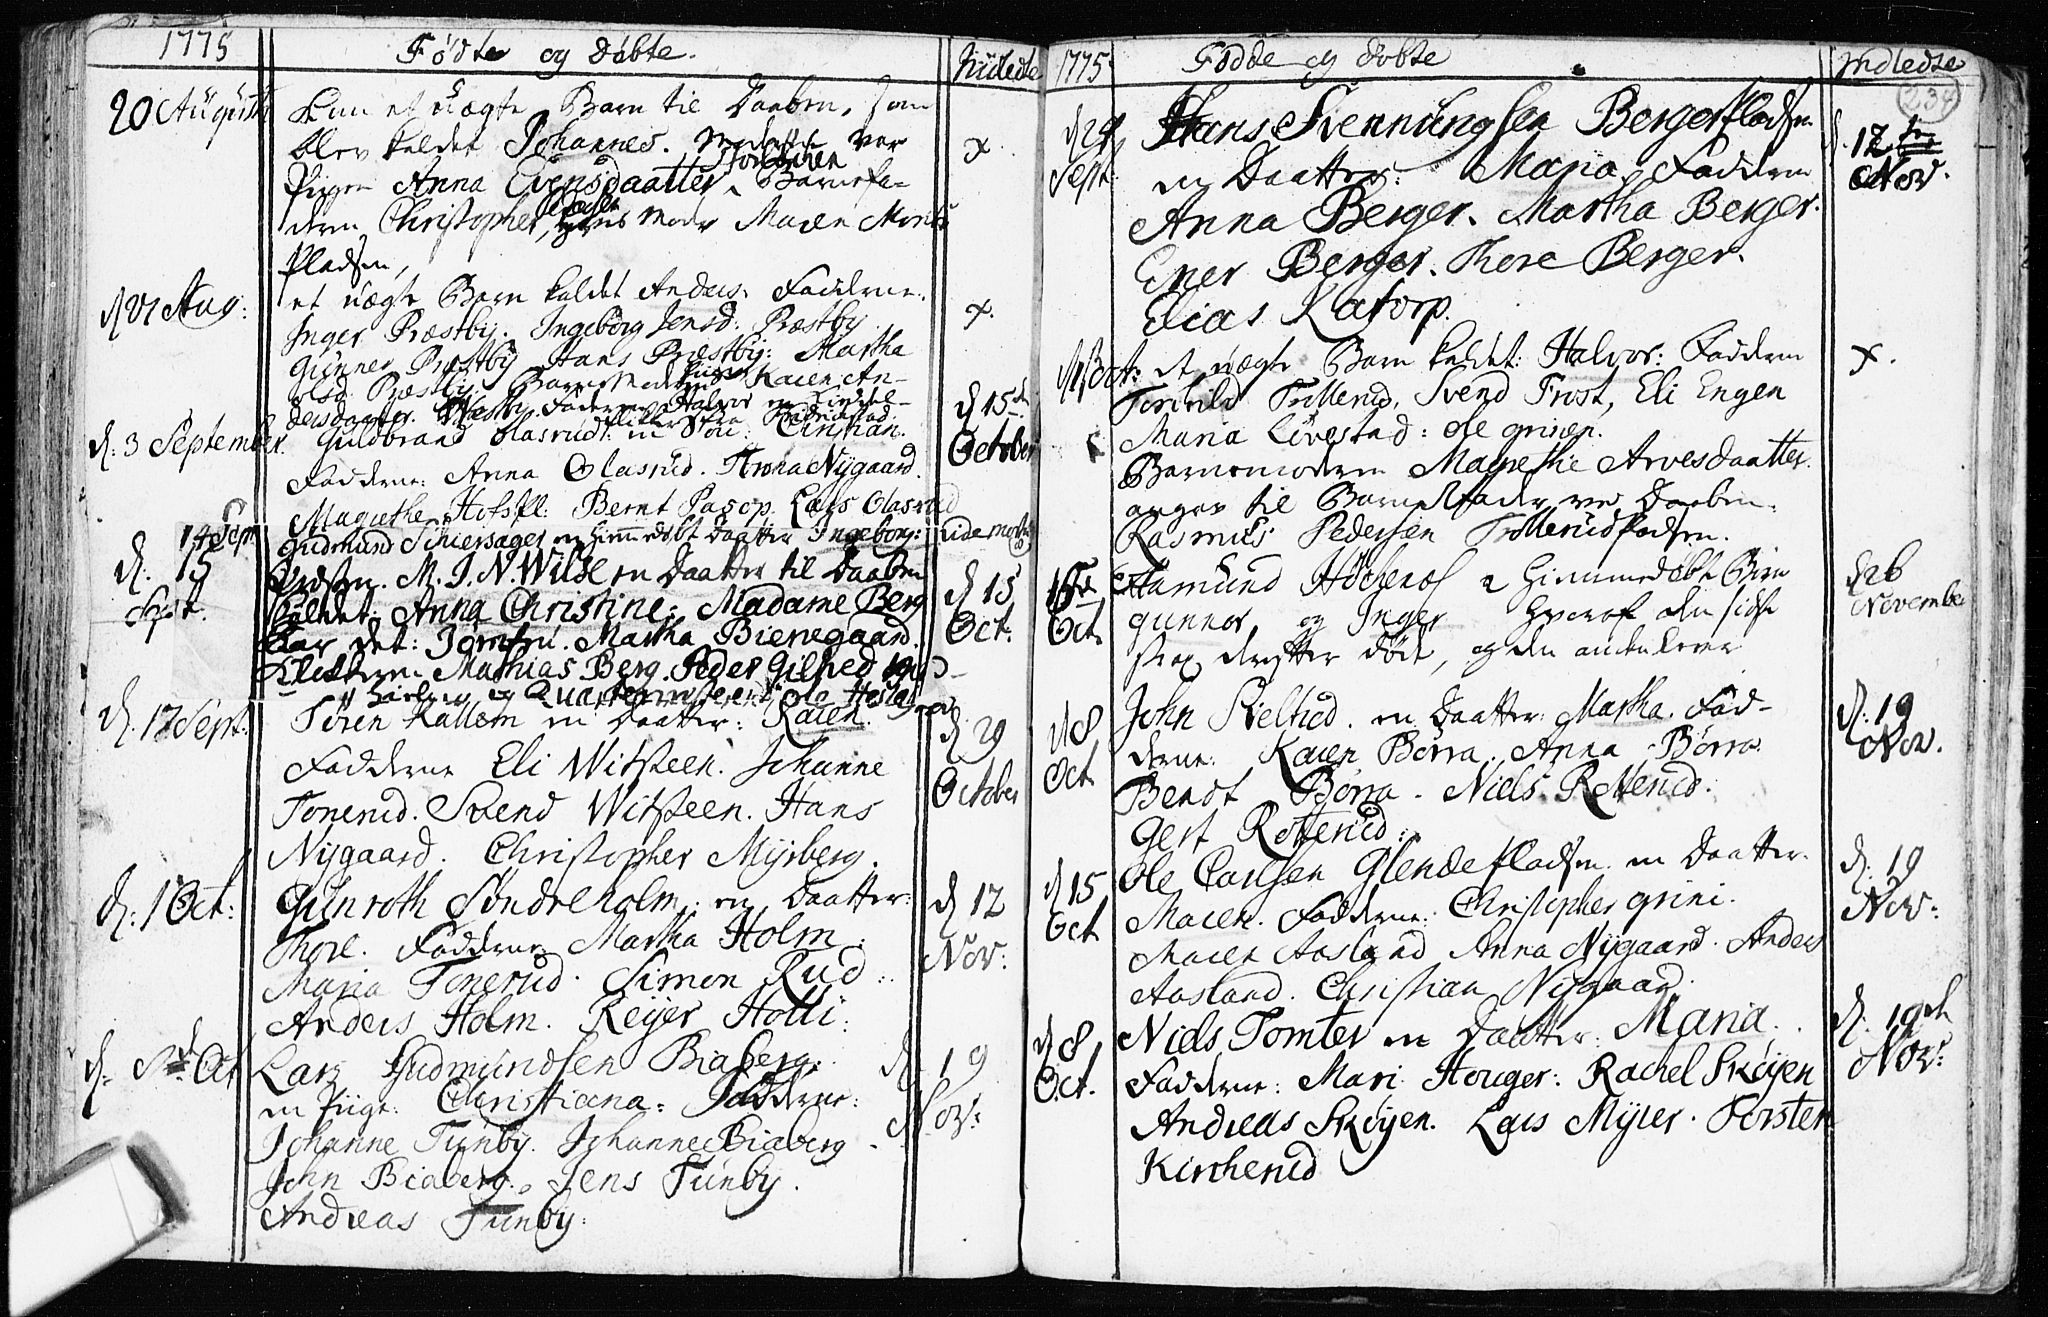 1775
Fødte og døbte.
Indledte
20 August
kom et uægte Barn til Daaben, som
blev kaldet Johannes. Moderen var
x
Pigen Anna Evensdaatter Barnefa-
deren Christopher, hans Moder Maren
Pladsen,
d 27 Aug:
et uægte Barn kaldet Anders. Fadderne.
Inger Præstby. Ingeborg Jensd: Præstby
x.
Gunner Præstby Hans Præstby: Martha
Olsd Præstby. Barnemoderen Pigen Karen An-
dersdaatter. Faderen Halvor
d: 3 September
Guldbrand Olasrud: en Søn: Christian.
d 15de October
Fadderne: Anna Olasrud. Anna Nygaard.
Magrethe Hofspl: Bernt Pasop. Lars Olasrud
14 Sept
Gudmund Schiersager en hiemmedøbt Daatter Ingeborg:
d. 15 Sept.
M. J. N. Wilse en Daatter til Daaben
d 15 Oct:
kaldet: Anna Christine; Madame Berg
bar det: Jomfru. Martha Bienegaard.
Mathias Berg. Peder Gilhed
og Quarteermesteer Ola
d. 17 Sept:
Søren Kallem en Daatter: Karen.
d 29 October
Fadderne Eli Witsteen. Johanne
Tonerud. Svend Witsteen. Hans
Nygaard. Christopher Myrberg.
d: 1 Oct:
Gunroth Søndreholm: en Daatter:
d 12 Nov:
Thore. Fadderne Martha Holm.
Maria Tonerud. Simon Rud:
Anders Holm. Reyer Holli:
d. 8de Oct
Lars Gudmundsen Biaberg:
d. 19 Nov:
en Pige: Christiana: Fadderne:
Johanne Tunby. Johanne Biaberg
John Biaberg. Jens Tunby.
Andreas Tunby:
1775
Fødde og døbte
Indledte
234
d 29 Sept:
Hans Svennungsen Bergerpladsen
d. 12 Nov.
en Daatter: Maria, Fadderne
Anna Berger. Martha Berger.
Ener Berger. Thore Berger.
Elias Katorp.
d 1 Oct:
et uægte Barn kaldet: Halvor: Fadderne
x.
Torchild Tollerud, Svend Frost, Eli Engen
Maria Løvestad: Ole grinen.
Barnemoderen Magrethe Arvesdaatter.
angav til Barnefader ved Daaben.
Rasmus Pedersen Tollerudpladsen.
Oct
Aamund 2 hiemmedøbt Børn
d 26 November
gunnor, og Inger hvoraf den sidste
strax derefter døde, og den anden lever
d 8 Oct
John Skeltud. en Daatter: Martha. Fad-
d: 19 Nov.
derne: Karen Børra. Anna Børra
Bendt Børra. Niels Rotterud.
Gert Rotterud:
d 15 Oct
Ole Carlsen Glendepladsen en Daatter.
d: 19 Nov:
Maren. Fadderne: Christopher grini.
Maren Aasland Anna Nygaard. Anders
Aasland. Christian Nygaard
d 8 Oct.
Niels Tomter en Daatter: Maria.
d. 19de Nov:
Fadderne: Mari Houger: Rachel Skøyen
Andreas Skøyen. Lars Myrer. Torsten
Kircherud